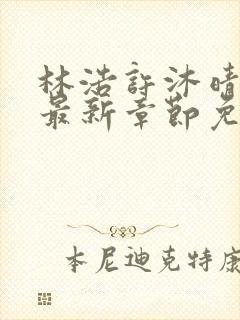 林浩許沐晴
最新章節免
本尼迪克特康